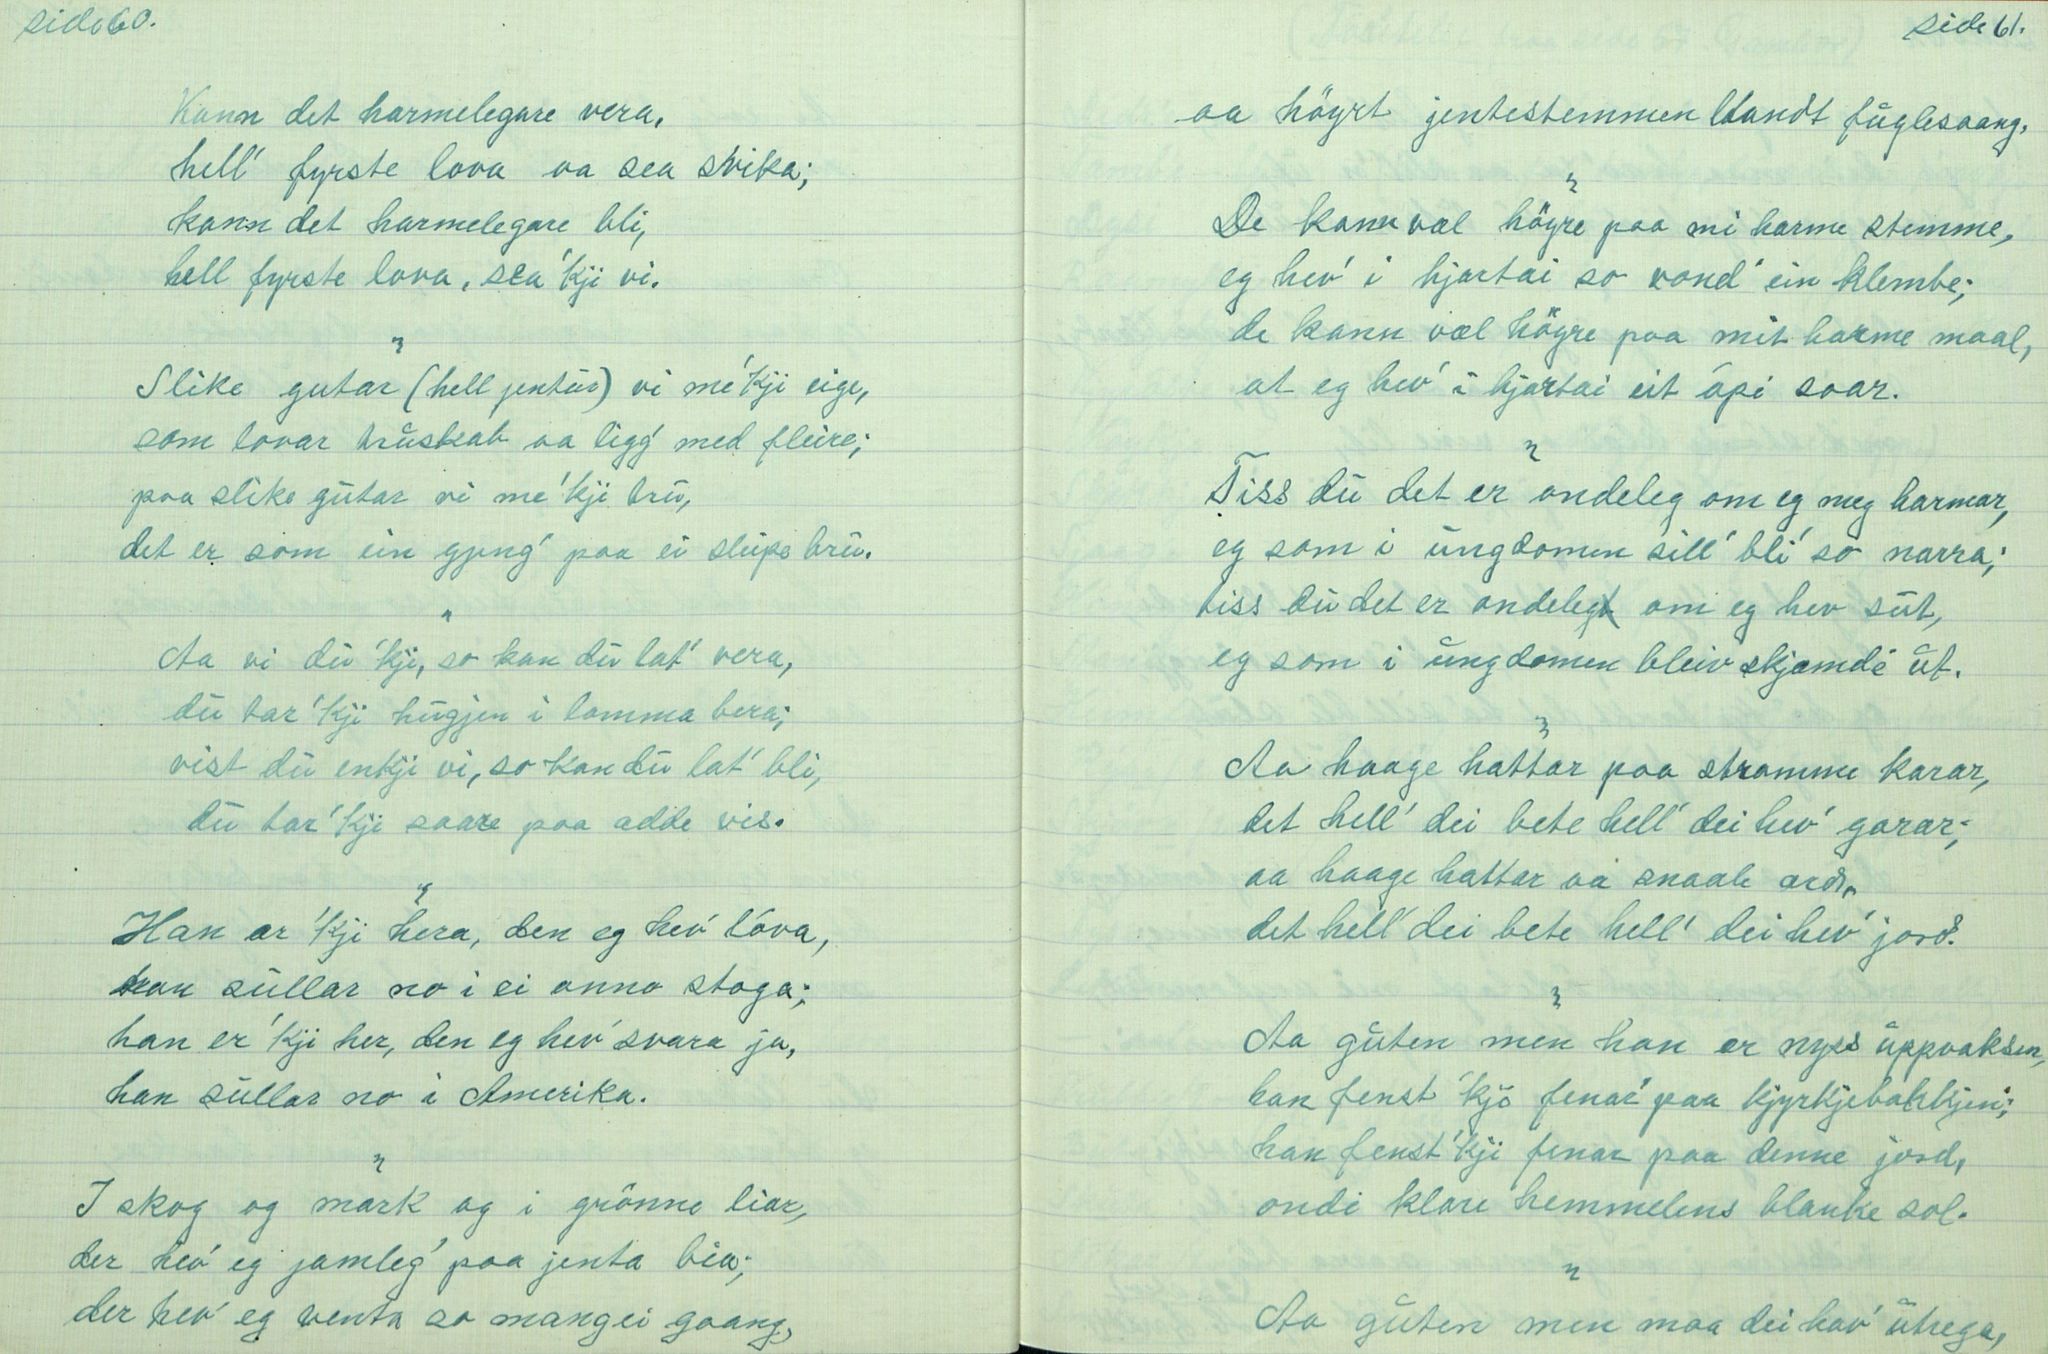 side 60.
Kann det harmelegare vera,
hell' fyrste lova aa sea svika;
kann det harmelegare bli,
hell fyrste lova, sea 'kji vi.
"
Slike gutar (hell jentür) vi me 'kji eige,
som lovar truskab aa ligg' med fleire;
paa slike gutar vi me 'kji tru,
det er som ein gjeng' paa ei sleipe bru.
"
Aa vi du 'kji, so kan du lat' vera,
du tar 'kji hugjen i lomma bera;
vist du enkji vi, so kan du lat' bli,
du tar 'kji svare paa adde vis.
"
Han er 'kji hera, den eg hev' lova,
han sullar no i ei onno stoga;
han er 'kji her, den eg hev' svara ja,
han sullar no i Amerika.
"
I skog og mark og i grönne liar,
der hev' eg jamleg' paa jenta bia;
der hev' eg venta so mangei gaang,
side 61.
aa höyrt jentestemmen blandt fuglesaang.
"
De kann væl höyre paa mi harme stemme,
eg hev' i hjartai so vond' ein klembe;
de kann væl höyre paa mit harme maal,
at eg hev' i hjartai eit opi saar.
"
Tiss du det er ondeleg om eg meg harmar,
eg som i ungdomen sill' bli' so narra;
tiss du det er ondeleg om eg hev sut,
eg som i ungdomen bleiv skjemde ut.
"
Aa haage hattar paa stramme karar,
det hell' dei bete hell' dei hev' garar;
aa haage hattar aa snaale ord,
det hell' dei bete hell' dei hev' jord.
"
Aa guten men han er nyss uppvaksen,
han fenst 'kji fenar' paa kjyrkjebakkjen;
han fenst 'kji fenar paa denne jord,
ondi klare hemmelens blanke sol.
"
Aa guten men maa dei hav' utrega,